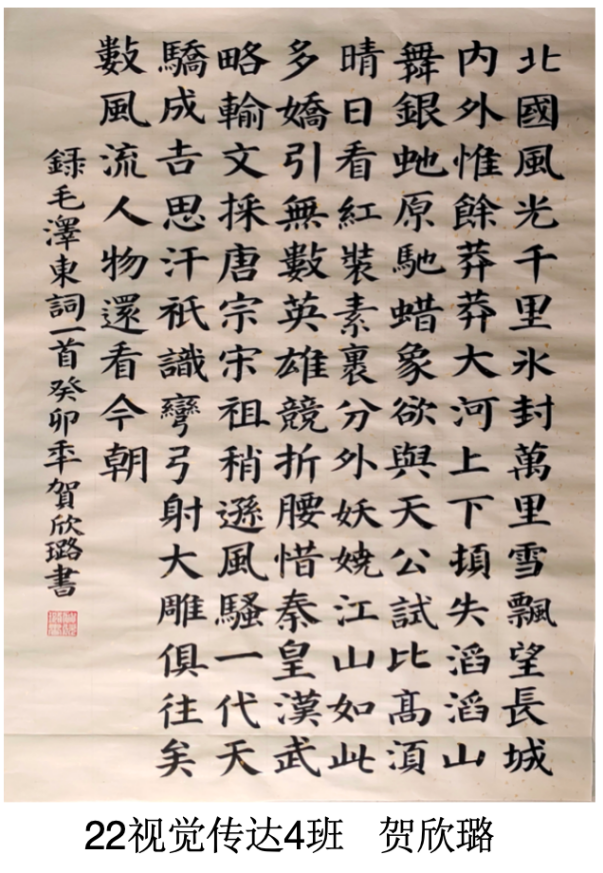 北國風光千里氷封萬里雪飄望長城
内外惟餘莽莽大河上下頓失滔滔山
舞銀虵原馳蜡象欲與天公試比髙湏
晴日看紅裝素裹分外妖嬈江山如此
多嬌引無數英雄競折腰惜秦皇漢武
略輸文採唐宗宋祖稍遜風騷一代天
驕成吉思汗衹識彎弓射大雕俱往矣
數風流人物還看今朝
録毛澤東詞一首癸卯年賀欣璐書
22视觉传达4班 贺欣璐